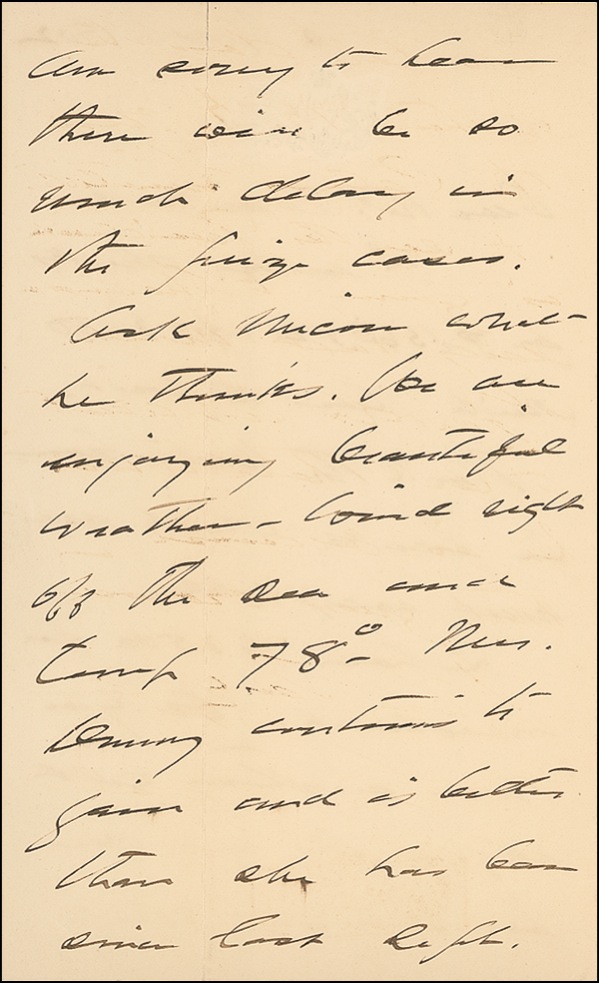 am sorry to hear
there will be so
much delay in
the prize cases.
Ask Micou what
he thinks. We are
enjoying beautiful
weather – wind right
off the sea and
temp 78° Mrs.
Dewey continues to
gain and is better
than she has been
since last Sept.